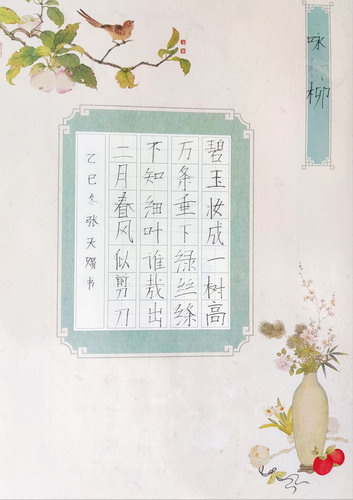 咏柳
碧玉妆成一树高
万条垂下绿丝绦
不知细叶谁裁出
二月春风似剪刀
乙巳冬张天赐书